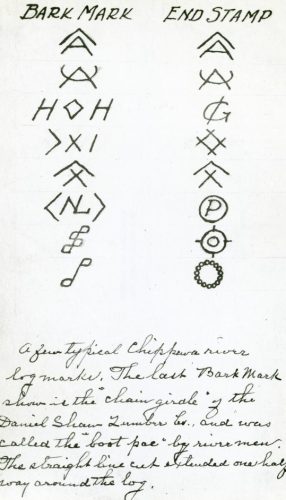 BARK MARK END STAMP
A A
A
H ◇ H G
>XI
X X
<NL> P
A few typical Chippewa river
log marks. The last "Bark Mark
show is the "chain girdle" of the
Daniel Shaw Lumber Co., and was
called the "boot pac" by river men.
The straight line cut extended one half
way around the log.